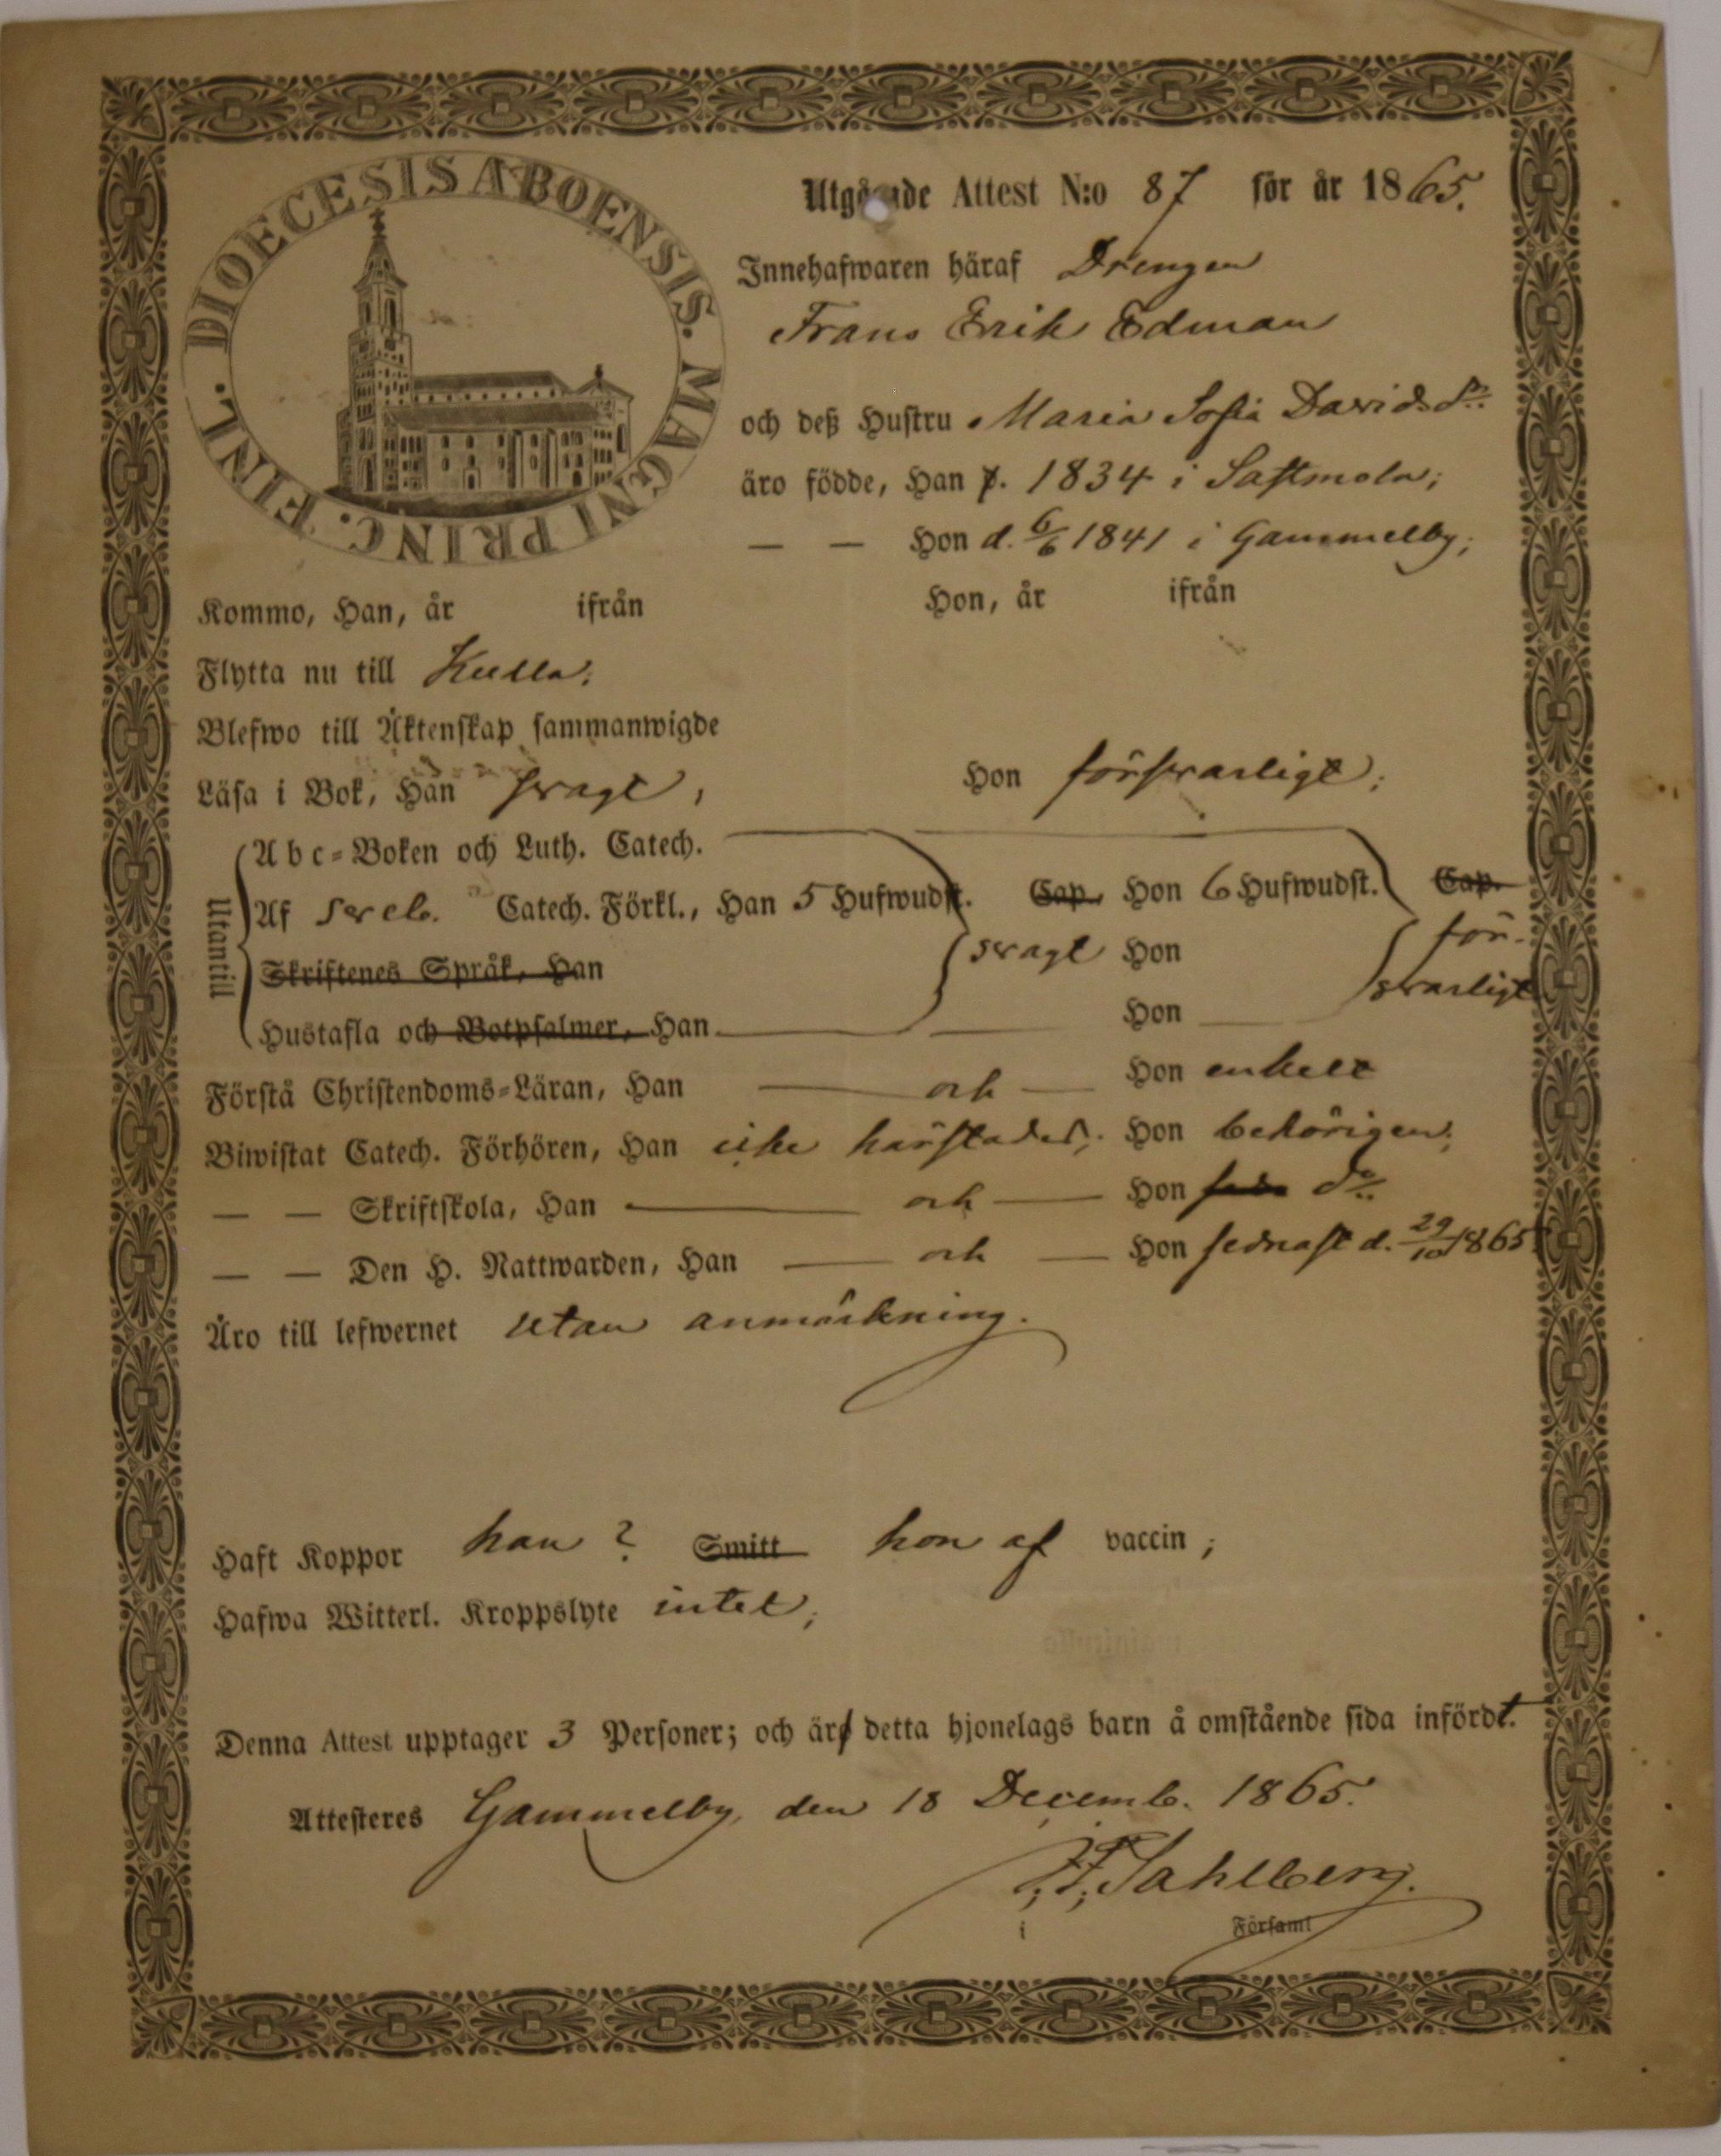 DIOECESIS ABOENSIS. MAGNI PRINC. FINL.
Utgående Attest N:o 87 för år 1865.
Innehafwaren häraf Drengen
Frans Erik Edman
och deß Hustru Maria Sofia Davidsdr.
äro födde, Han f. 1834 i Sastmola;
— — Hon d. 6/6 1841 i Gammelby;
Kommo, Han, år ifrån Hon, år ifrån
Flytta nu till Kulla;
Blefwo till Äktenskap sammanwigde
Läsa i Bok, Han svagt, Hon försvarligt;
Utantill
Abc-Boken och Luth. Catech.
Af Sveb. Catech. Förkl., Han 5 Hufwudst. Cap. Hon 6 Hufwudst. Cap.
Skriftenes Språk, Han svagt Hon för-
svarligt
Hustafla och Botpsalmer, Han Hon
Förstå Christendoms-Läran, Han — och — Hon enkelt
Biwistat Catech. Förhören, Han icke härstädes; Hon behörigen;
— — Skriftskola, Han — och — Hon do
— — Den H. Nattwarden, Han — och — Hon sednast d. 29/10 1865
Äro till lefwernet utan anmärkning.
Haft Koppor han ? Smitt hon af vaccin;
Hafwa Witterl. Kroppslyte intet;
Denna Attest upptager 3 Personer; och äro detta hjonelags barn å omstående sida infördt.
Attesteres Gammelby, den 18 Decemb. 1865.
Sahlberg.
i Församl